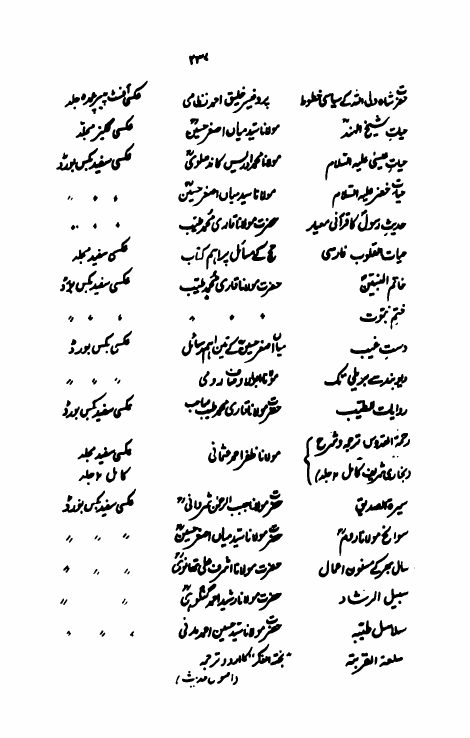 ۲۳۷
حضرت شاہ ولی اللہ کے سیاسی خطوط پروفیسر خلیق احمد نظامی عکسی آفسٹ پیپر عمدہ جلد
حیات شیخ الہندؒ مولانا سید میاں اصغر حسینؒ عکسی گلیز مجلد
حیات عیسیٰ علیہ السلام مولانا محمد ادریس کاندھلویؒ عکسی سفید بکس بورڈ
حیات خضر علیہ السلام مولانا سید میاں اصغر حسینؒ 〃 〃 〃
حدیث رسولؐ کا قرآنی معیار حضرت مولانا قاری محمد طیب 〃 〃 〃
حیات القلوب فارسی حج کے مسائل پر اہم کتاب عکسی سفید مجلد
خاتم النبیینؐ حضرت مولانا قاری محمد طیبؒ عکسی سفید بکس بورڈ
ختم نبوت 〃 〃 〃 〃 〃 〃
دست غیب میاں اصغر حسینؒ کے تین اہم رسائل عکسی بکس بورڈ
دیوبند سے بریلی تک مولانا ابوالاوصاف رومی 〃 〃 〃
روایات الطیب حضرت مولانا قاری محمد طیب صاحب عکسی سفید بکس بورڈ
رحمۃ القدوس ترجمہ و شرح مولانا ظفر احمد عثمانی عکسی سفید مجلد
(بخاری شریف کامل ۲ جلد) کامل ۲ جلد
سیرۃ الصدیقؓ حضرت مولانا حبیب الرحمن شروانیؒ عکسی سفید بکس بورڈ
سوانح مولانا رومؒ حضرت مولانا سید میاں اصغر حسینؒ 〃 〃 〃
سال بھر کے مسنون اعمال حضرت مولانا اشرف علی تھانویؒ 〃 〃 〃
سبیل الرشاد حضرت مولانا رشید احمد گنگوہیؒ 〃 〃
سلاسل طیبہ حضرت مولانا سید حسین احمد مدنی 〃 〃 〃
سلعۃ القربۃ "نخبۃ الفکر" کا اردو ترجمہ
(اصول حدیث)